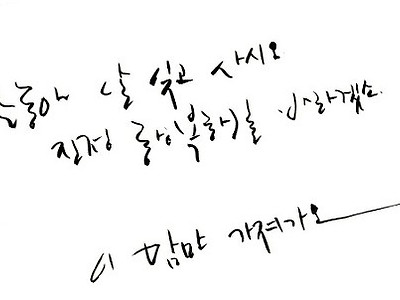 날 잊고 사시오
진정 행복하길 바라겠소.
이 맘만 가져가오